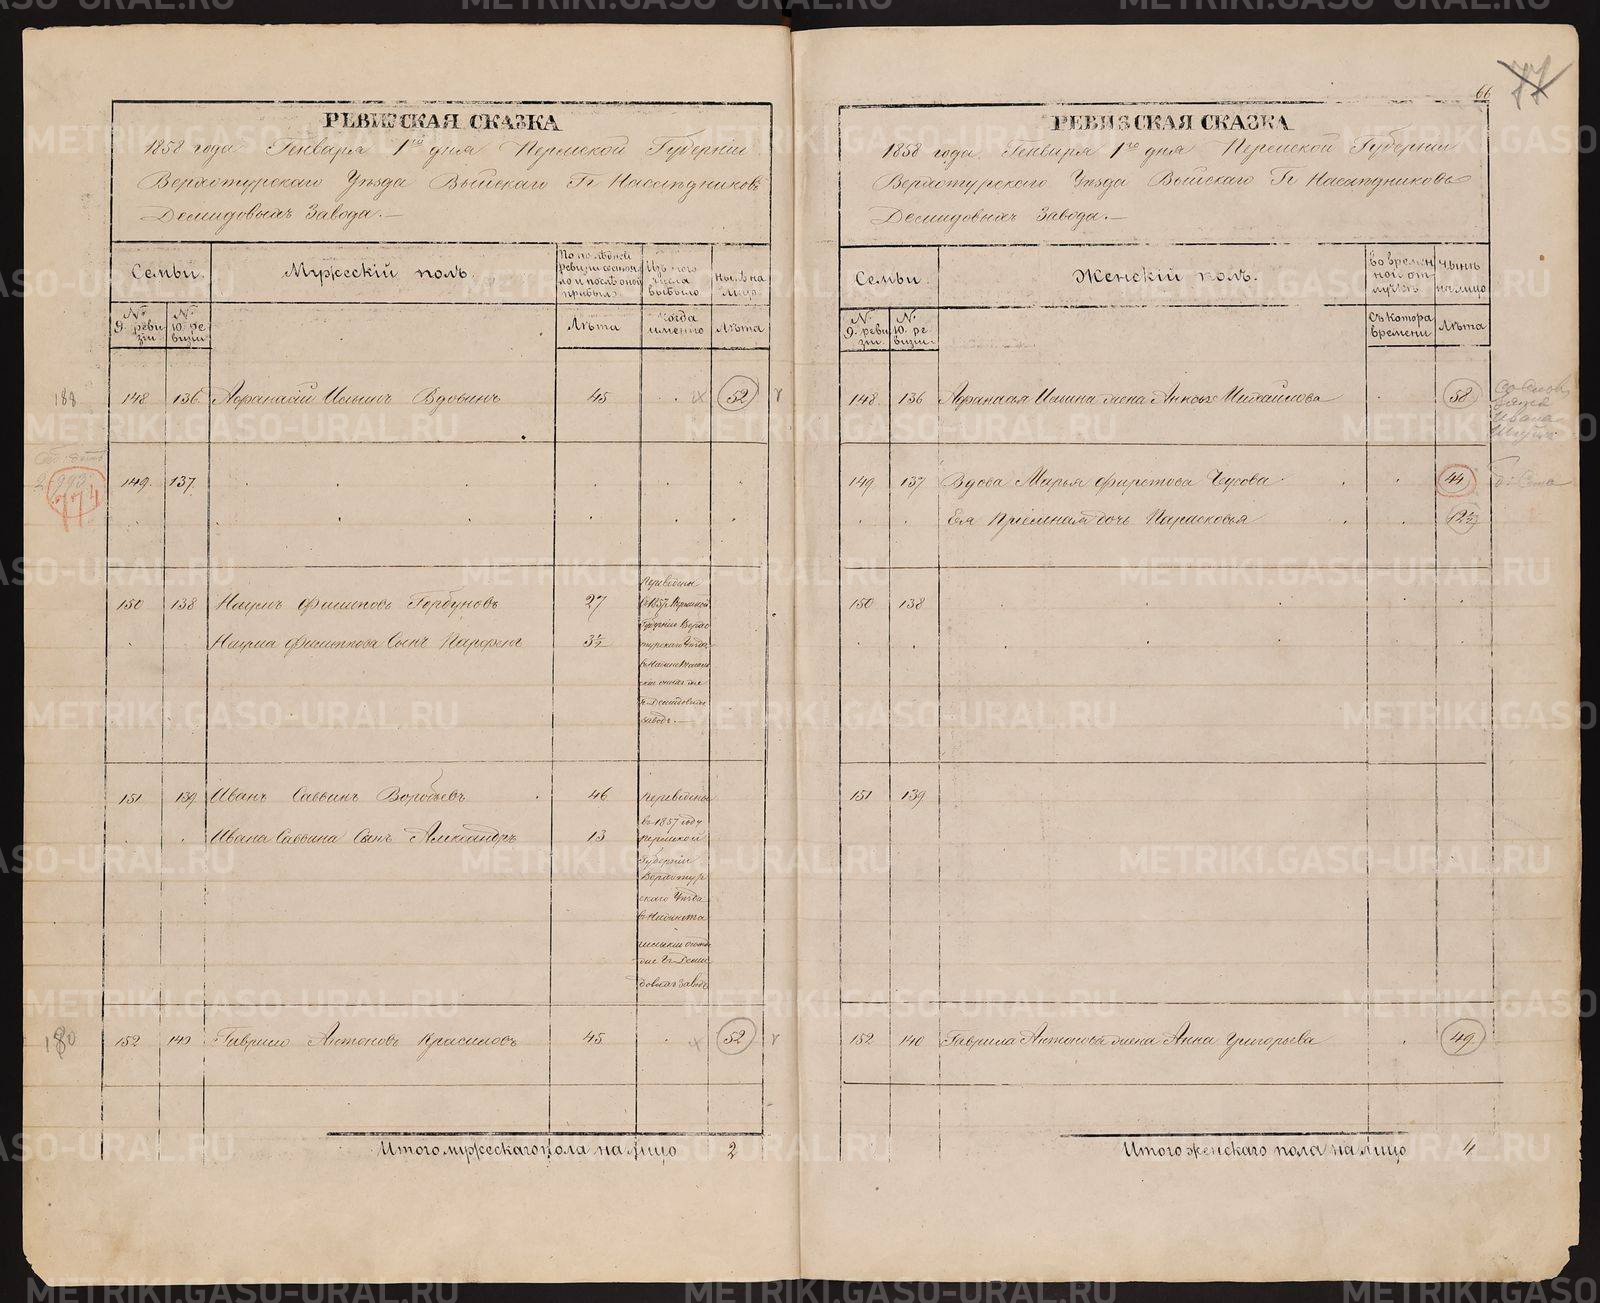 РЕВИЗСКАЯ СКАЗКА
1858 года Генваря 1го дня Пермской Губерніи
Верхотурскаго Уѣзда Выйскаго Гг Наслѣдниковъ
Демидовыхъ Завода.—
Семьи.
Мужескій полъ.
По послѣдней ревизіи состояло и послѣ оной прибыло
Изъ того числа выбыло
Нынѣ на лицо
№ 9. ревизіи
№ 10. ревизіи
Лѣта
Когда именно
Лѣта
188
148 136. Афанасій Ильинъ Вдовинъ 45 52
774
149. 137.
150 138 Наумъ Филиповъ Горбуновъ 27
Наума Филиппова Сынъ Парфенъ 3½
Переведены
въ 1857 г. Пермской
Губерніи Верхо
турскаго Уѣзда
Гг. Демидовыхъ
заводъ.—
151 139 Иванъ Саввинъ Воробьевъ 46
Ивана Саввина Сынъ Александръ 13
Переведены
въ 1857 году
Пермской
Губерніи
Верхотур
скаго Уѣзда
въ Нижнета
гильскій
Гг. Деми
довыхъ Заводъ
180
152 140 Гаврило Антоновъ Красиловъ 45 52
Итого мужескаго пола на лицо 2
66
77
РЕВИЗСКАЯ СКАЗКА
1858 года. Генваря 1го дня Пермской Губерніи
Верхотурскаго Уѣзда Выйскаго Гг Наслѣдниковъ
Демидовыхъ Завода.—
Семьи.
Женскій полъ.
Во временной отлучкѣ
Нынѣ на лицо
№ 9. ревизіи
№ 10. ревизіи
Съ котора времени
Лѣта
148. 136 Афанасья Ильина жена Михайлова 58
149 137 Вдова Марья Чусова 44
Ея Пріемная дочь Парасковья 12½
150 138
151 139
152 140 Гаврила Антонова жена Анна Григорьева 49
Итого женскаго пола на лицо 4
METRIKI.GASO-URAL.RU